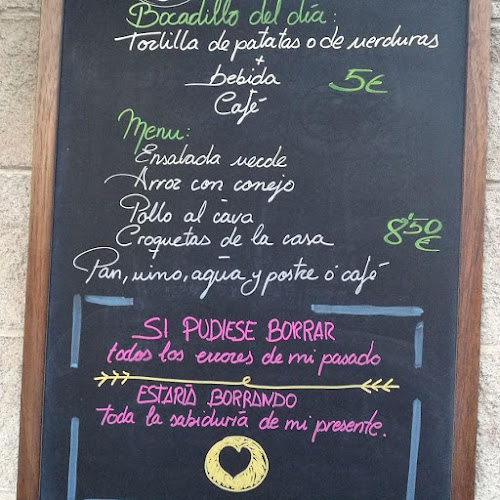 Bocadillo del día:
Tortilla de patatas o de verduras
+
bebida 5€
Café
Menu:
Ensalada verde
Arroz con conejo
Pollo al cava
Croquetas de la casa 8'50 €
Pan, vino, agua y postre ó café
SI PUDIESE BORRAR
todos los errores de mi pasado
ESTARÍA BORRANDO
toda la sabiduría de mi presente.